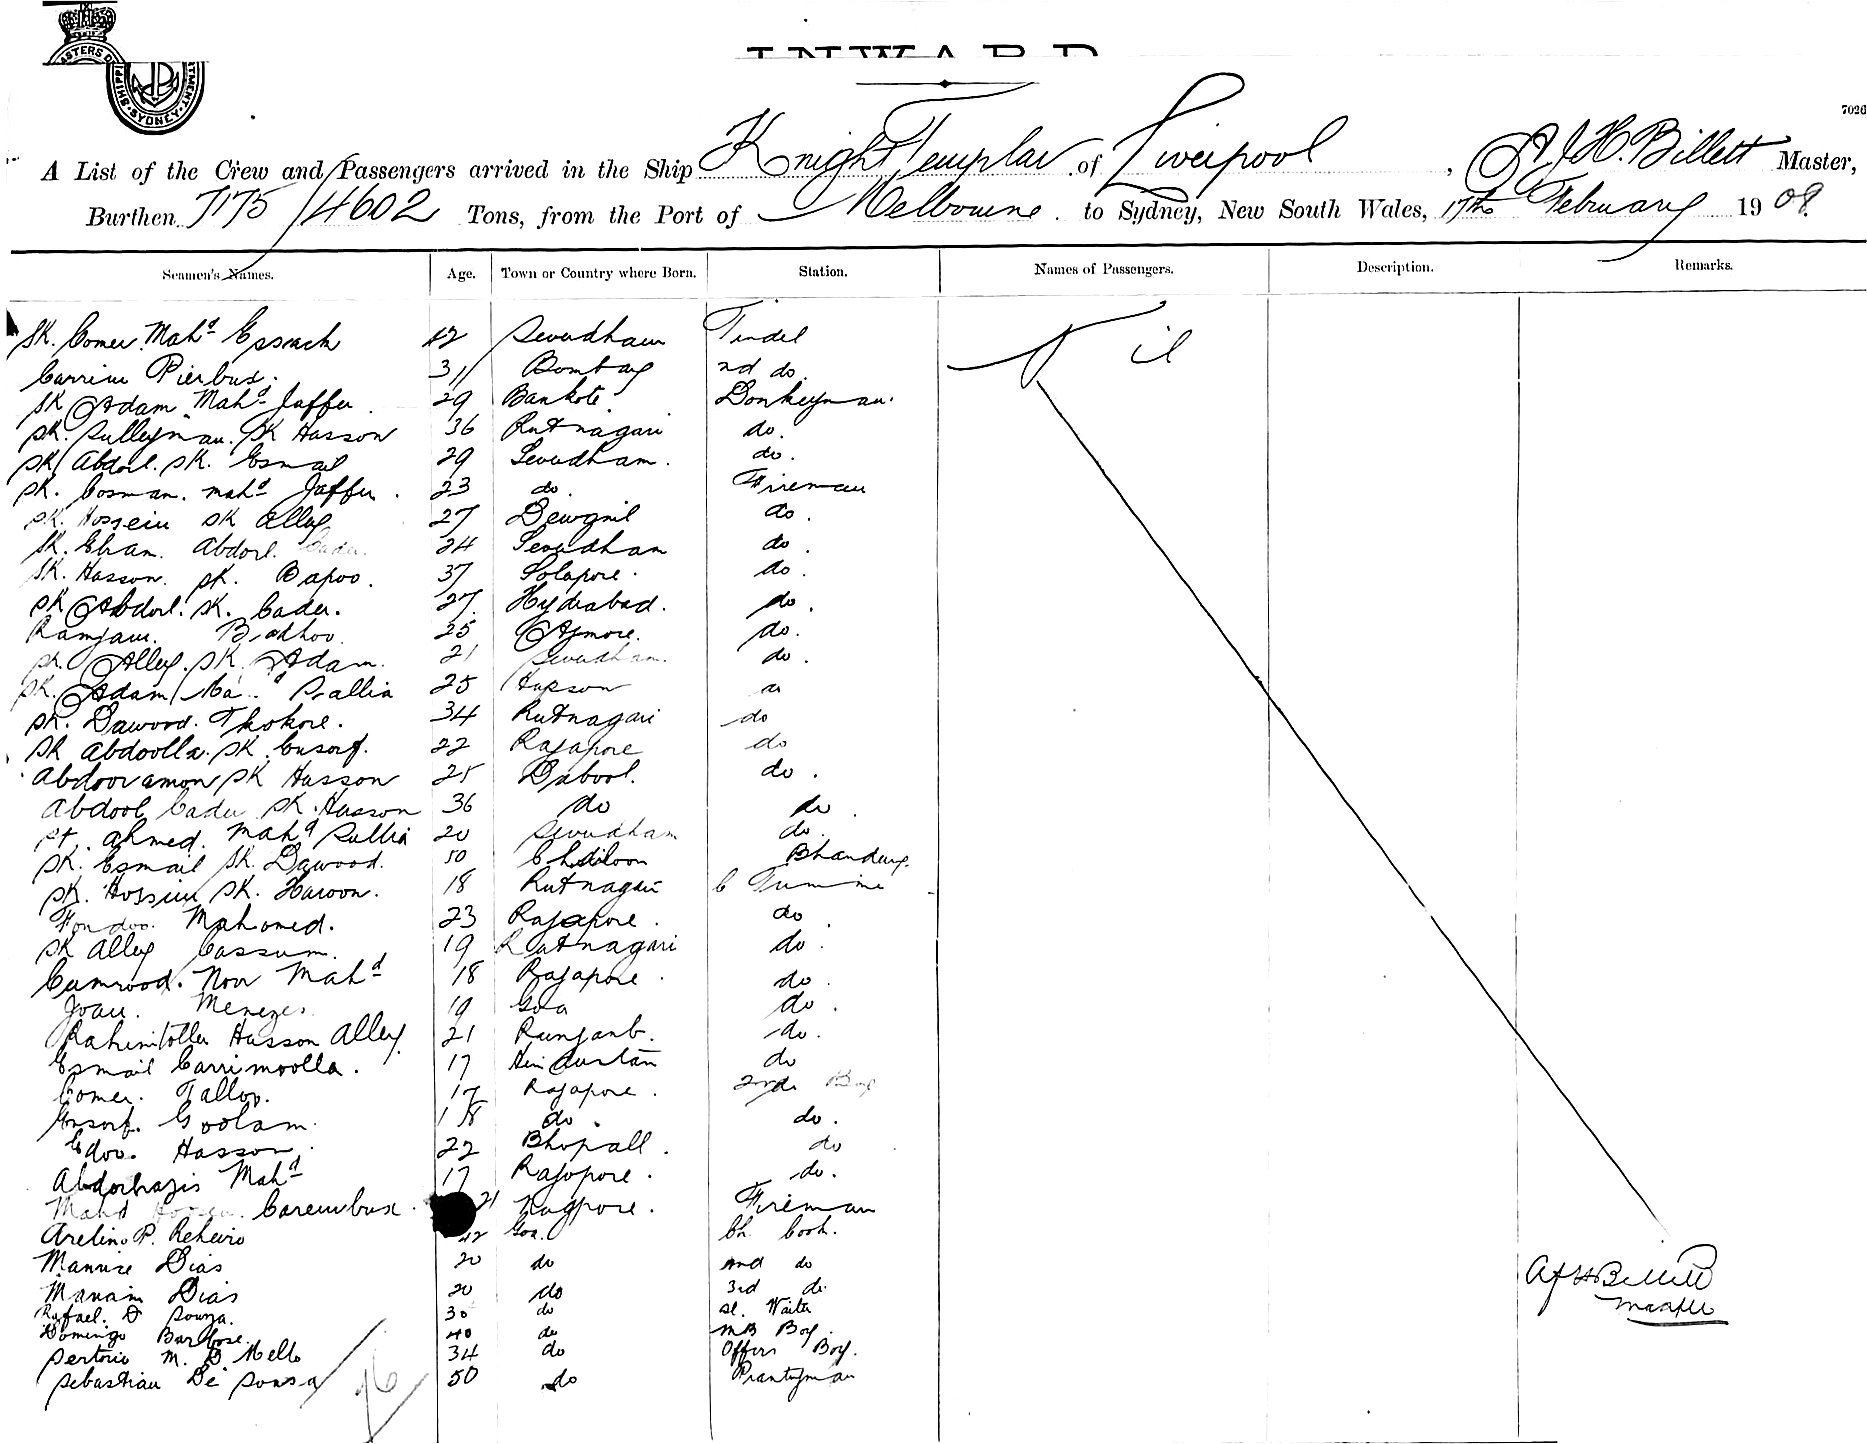 INWARD
7026
A List of the Crew and Passengers arrived in the Ship Knight Templar of Liverpool, A J H. Billett Master,
Burthen 7175/4602 Tons, from the Port of Melbourne to Sydney, New South Wales, 17th February 1908.
Seamen's Names. Age. Town or Country where Born. Station. Names of Passengers. Description. Remarks.
Sk. Comer Mahd Essack 42 Sevudham Tindel Nil
Carrim Pierbux. 31 Bombay 2nd do.
Sk Adam Mahd Jaffer. 29 Bankote Donkeyman.
Sk. Sulleyman. Sk Hasson 36 Rutnagari do.
Sk Abdol. Sk. Esmail 29 Sevudham. do.
Sk. Cosman. Mahd Jaffer. 23 do. Fireman
Sk. Hossein Sk Alley 27 do.
Sk. Ebram. Abdol. Cader. 24 Sevudham do.
Sk. Hasson. Sk. Bapoo. 37 Solapore. do.
Sk Abdol. Sk. Cader. 27. Hydrabad. do.
Ramjan. Bodhoo. 25 Ajmore. do.
Sk. Alley. Sk. Adam. 21 Sevudham. do.
Sk. Adam 25
Sk. Dawood. Thokore. 34 Rutnagari do
Sk Abdoolla. Sk. Eusorf. 22 Rajapore do
Abdooramon Sk Hasson 25 Dabool. do.
Abdool Cader Sk. Hasson 36 do do.
Sk. Ahmed. Mahd 20 Sevudham do.
Sk. Esmail Sk. Dawood. 50 Bhandary.
Sk. Hossein Sk. Haroon. 18 Rutnagari C Trimme
Mahomed. 23 Rajapore. do
Sk Alley Cassum. 19 Rutnagari do.
Cumrood. Noor Mahd 18 Rajapore. do
Joau. Menezes. 19 Goa do.
Rahimtolla Hasson Alley. 21 do.
Esmail Carrimoolla. 17 Hindustan do
Comer. Talloo. 17 Rajapore. Boy
Eusorf. Goolam. 18 do. do.
Edoo. Hasson. 22 Bhopall. do
Mahd 17 Rajopore. do.
Mahd Carembux. 21 Nagpore. Fireman
Arelino P. Reheiro 42 Goa. Ch. Cook.
Dias 20 do 2nd do
Dias 20 do 3rd do
Rafael. D Souza. 30 do Sl. Waiter
Domingo Barbose. 40 do MB Boy.
Sertorio M. D Mello 34 do Offrs Boy.
Sebastian De Sousa 50 do Prantryman
AJH Billett
Master